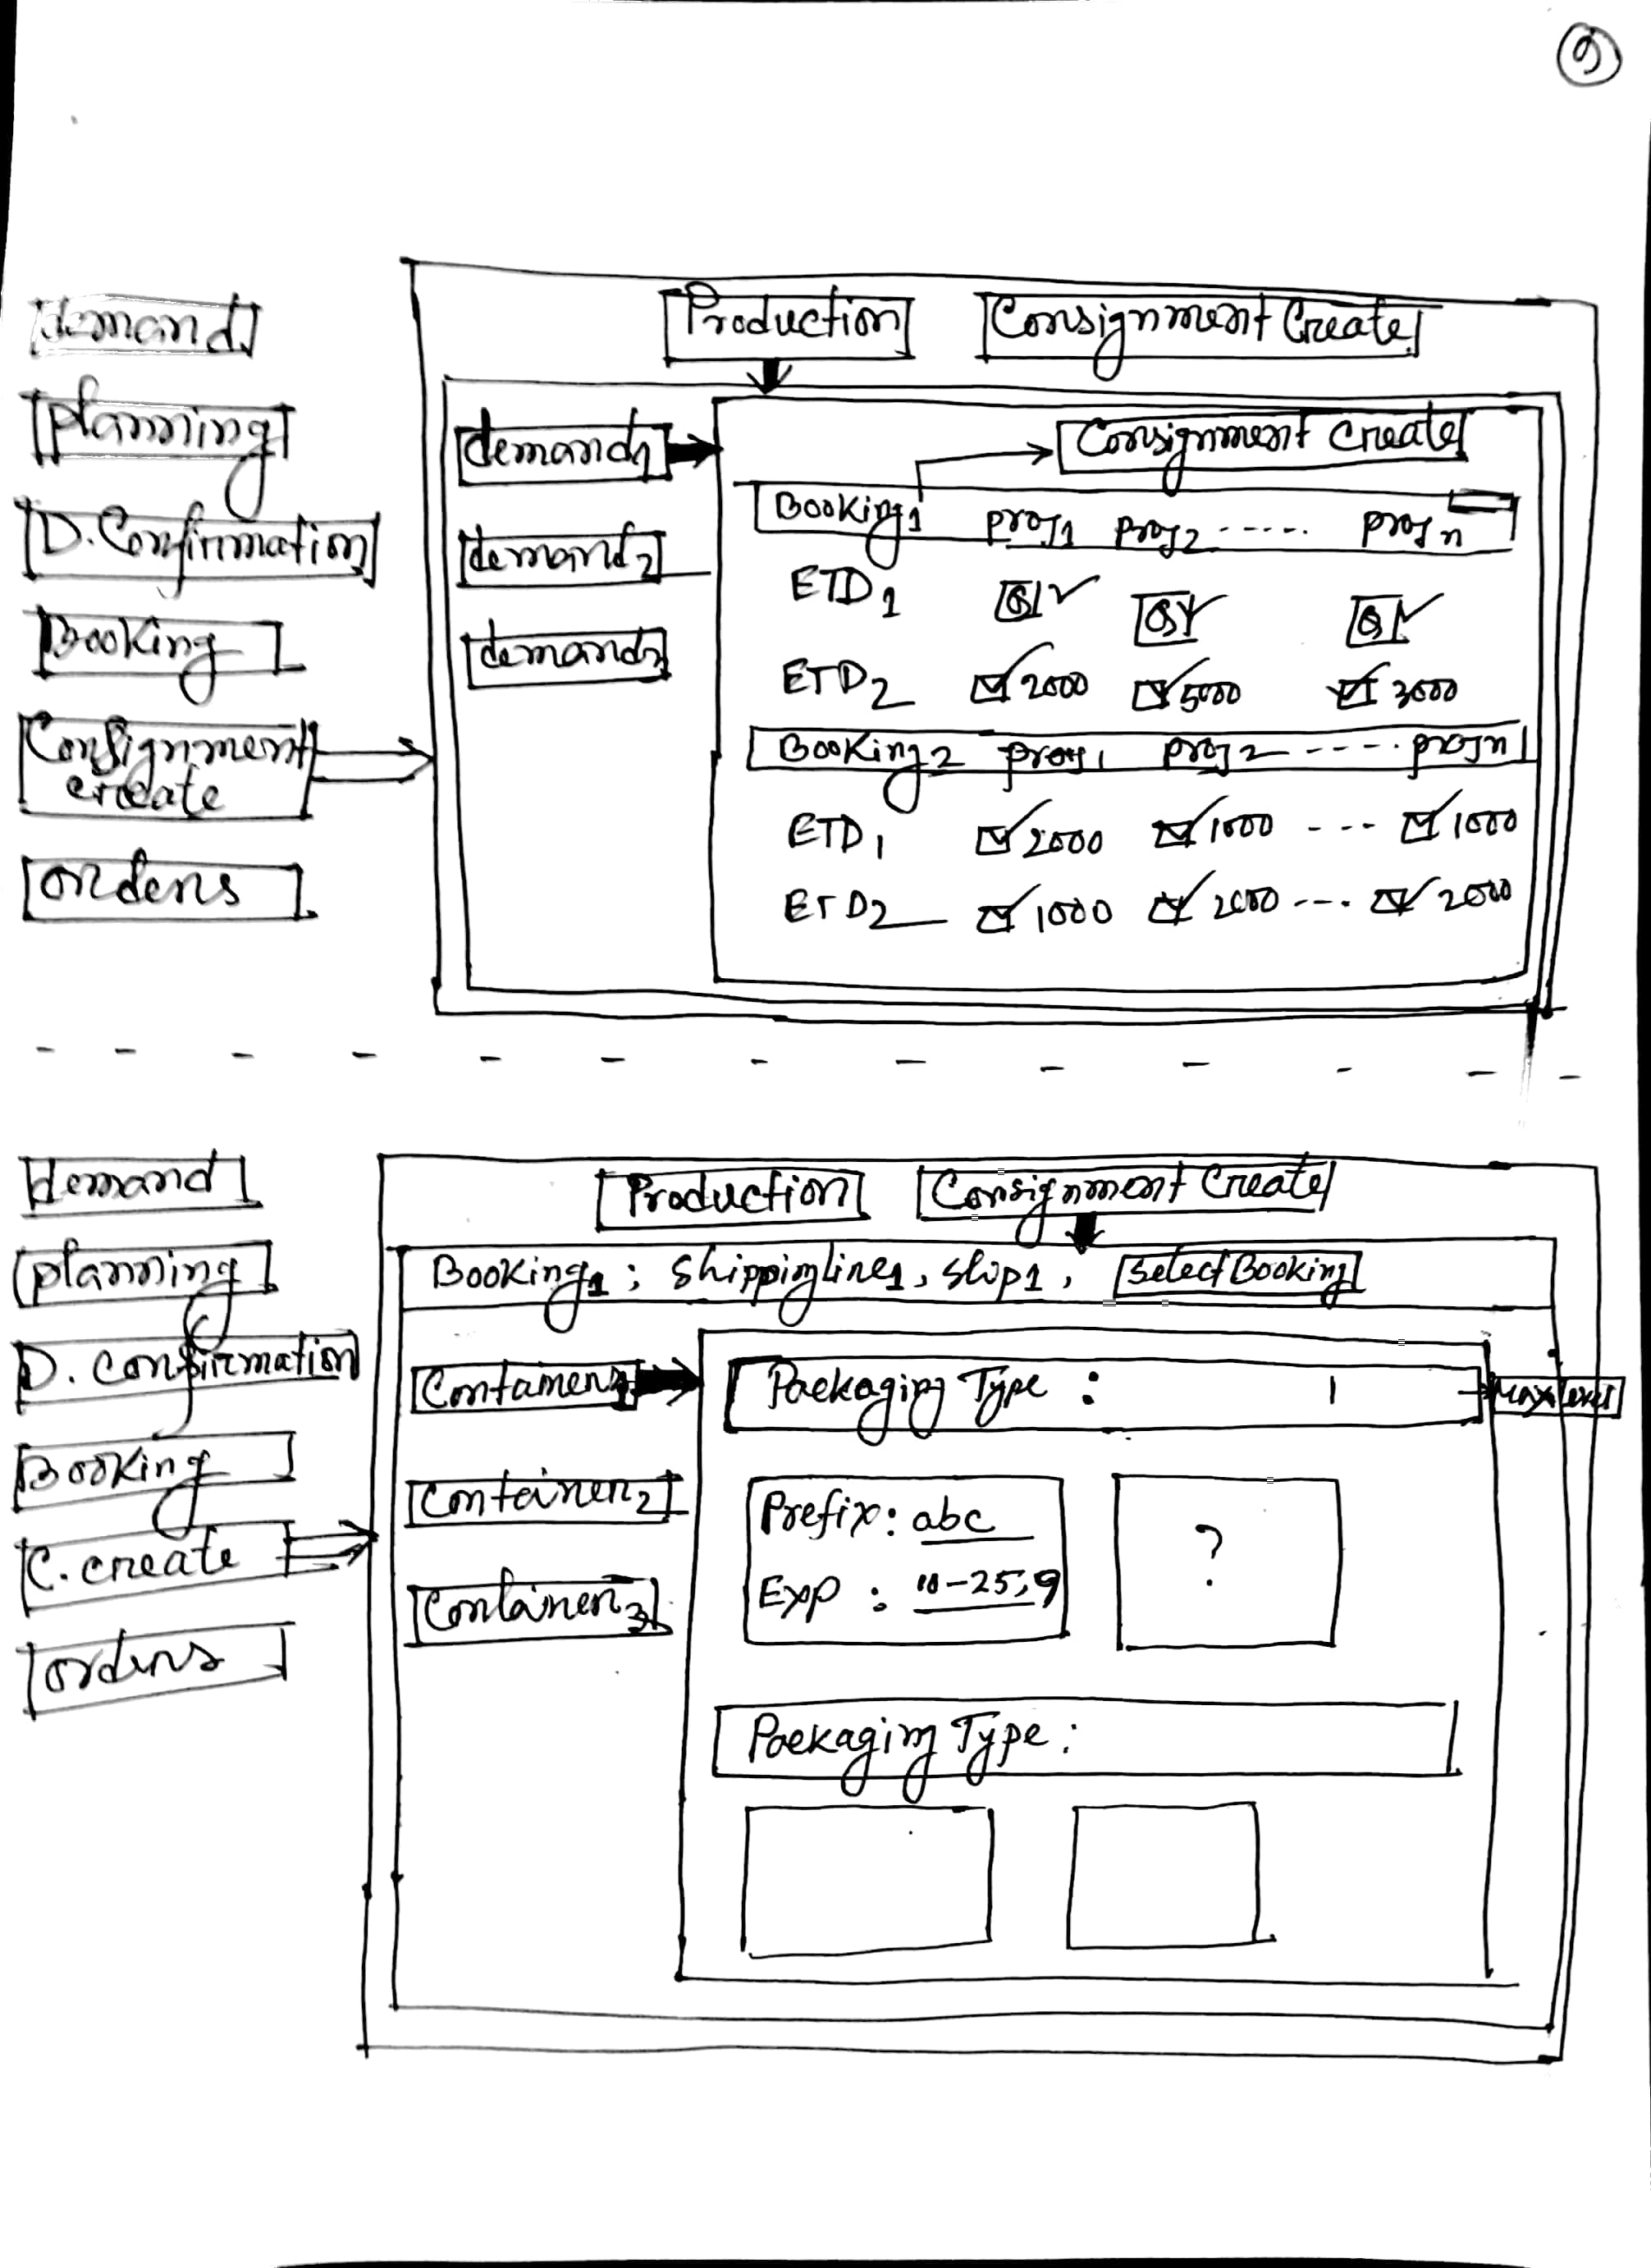 9
demand
planning
D. Confirmation
Booking
Consignment
create
orders
Production
Consignment Create
demand1
demand2
demand3
Consignment create
Booking1 proj1 proj2 ...... proj n
ETD1
ETD2 2000 5000 3000
Booking2 proj1 proj2 ----- projn
ETD1 2000 1000 --- 1000
ETD2 1000 2000 ---. 2000
demand
planning
D. confirmation
Booking
C. create
orders
Production
Consignment Create
Booking1 ; Shippingline1, Ship1, Select Booking
Container1
Container2
Container3
Packaging Type :
Prefix: abc
Exp :
?
Packaging Type :